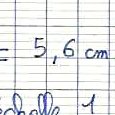 = 5,6 cm
échelle 1